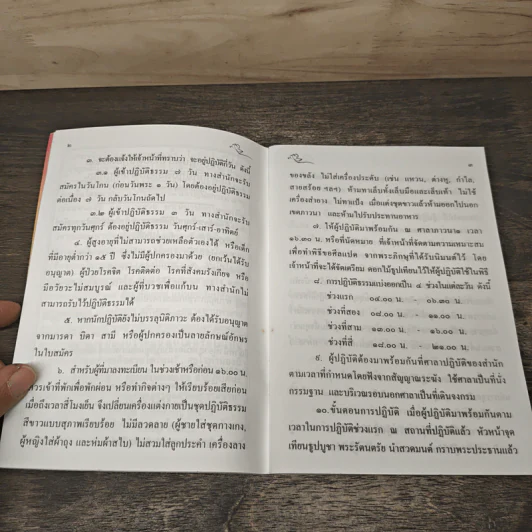 ๒
๓. จะต้องแจ้งให้เจ้าหน้าที่ทราบว่า จะอยู่ปฏิบัติกี่วัน ดังนี้
๓.๑ ผู้เข้าปฏิบัติธรรม ๗ วัน ทางสำนักจะรับ
สมัครในวันโกน (ก่อนวันพระ ๑ วัน) โดยต้องอยู่ปฏิบัติธรรม
ต่อเนื่อง ๗ วัน กลับวันโกนถัดไป
๓.๒ ผู้เข้าปฏิบัติธรรม ๓ วัน ทางสำนักจะรับ
สมัครทุกวันศุกร์ ต้องอยู่ปฏิบัติธรรม วันศุกร์-เสาร์-อาทิตย์
๔. ผู้สูงอายุที่ไม่สามารถช่วยเหลือตัวเองได้ หรือเด็ก
ที่มีอายุต่ำกว่า ๑๕ ปี ซึ่งไม่มีผู้ปกครองมาด้วย (ยกเว้นได้รับ
อนุญาต) ผู้ป่วยโรคจิต โรคติดต่อ โรคที่สังคมรังเกียจ หรือ
มีอวัยวะไม่สมบูรณ์ และผู้ที่บวชเพื่อแก้บน ทางสำนักไม่
สามารถรับไว้ปฏิบัติธรรมได้
๕. หากนักปฏิบัติยังไม่บรรลุนิติภาวะ ต้องได้รับอนุญาต
จากมารดา บิดา สามี หรือผู้ปกครองเป็นลายลักษณ์อักษร
ในใบสมัคร
๖. สำหรับผู้ที่มาลงทะเบียน ในช่วงเช้าหรือก่อน ๑๖.๐๐ น.
ควรเข้าที่พักเพื่อพักผ่อน หรือทำกิจต่างๆ ให้เรียบร้อยเสียก่อน
เมื่อถึงเวลาสี่โมงเย็น จึงเปลี่ยนเครื่องแต่งกายเป็นชุดปฏิบัติธรรม
สีขาวแบบสุภาพเรียบร้อย ไม่มีลวดลาย (ผู้ชายใส่ชุดกางเกง,
ผู้หญิงใส่ผ้าถุง และห่มผ้าสไบ) ไม่สวมใส่ลูกประคำ เครื่องลาง
๓
ของขลัง ไม่ใส่เครื่องประดับ (เช่น แหวน, ต่างหู, กำไล,
สายสร้อย ฯลฯ) ห้ามทาเล็บทั้งเล็บมือและเล็บเท้า ไม่ใช้
เครื่องสำอาง ไม่ทาแป้ง เมื่อแต่งชุดขาวแล้วห้ามออกไปนอก
เขตภาวนา และห้ามไปรับประทานอาหาร
๗. ให้ผู้ปฏิบัติมาพร้อมกัน ณ ศาลาภาวนา เวลา
๑๖.๓๐ น. หรือที่นัดหมาย ที่เจ้าหน้าที่จัดตามความเหมาะสม
เพื่อทำพิธีขอศีลแปด จากพระภิกษุที่ได้รับนิมนต์ไว้ โดย
เจ้าหน้าที่จะได้จัดเตรียม ดอกไม้ธูปเทียนไว้ให้ผู้ปฏิบัติใช้ในพิธี
๘. การปฏิบัติธรรมแบ่งออกเป็น ๔ ช่วงในแต่ละวัน ดังนี้
ช่วงแรก ๐๔.๐๐ น. - ๐๖.๓๐ น.
ช่วงที่สอง ๐๘.๐๐ น. - ๑๑.๐๐ น.
ช่วงที่สาม ๑๓.๐๐ น. - ๑๖.๐๐ น.
ช่วงที่สี่ ๑๘.๐๐ น. - ๒๑.๐๐ น.
๙. ผู้ปฏิบัติต้องมาพร้อมกันที่ศาลาปฏิบัติของสำนัก
ตามเวลาที่กำหนดโดยฟังจากสัญญาณระฆัง ใช้ศาลาเป็นที่นั่ง
กรรมฐาน และบริเวณรอบนอกศาลาเป็นที่เดินจงกรม
๑๐. ขั้นตอนการปฏิบัติ เมื่อผู้ปฏิบัติมาพร้อมกันตาม
เวลาในการปฏิบัติช่วงแรก ณ สถานที่ปฏิบัติแล้ว หัวหน้าจุด
เทียนธูปบูชา พระรัตนตรัย นำสวดมนต์ กราบพระประธานแล้ว